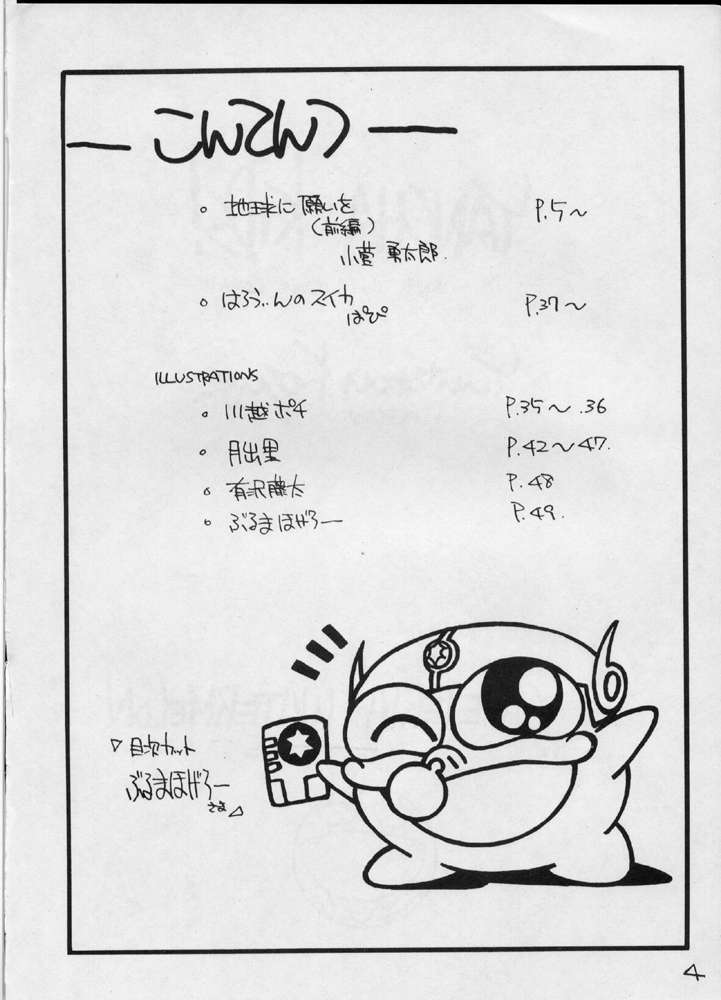 — こんてんつ —
。地球に願いを P.5〜
(前編)
小菅 勇太郎.
。はろうぃんのスイカ P.37〜
ぱぴ
ILLUSTRATIONS
。川越ポチ P.35〜.36
。月出里 P.42〜47.
。有沢藤太 P.48
。ぶるまほげろー P.49.
▽目次カット
ぶるまほげろー
さま△
4